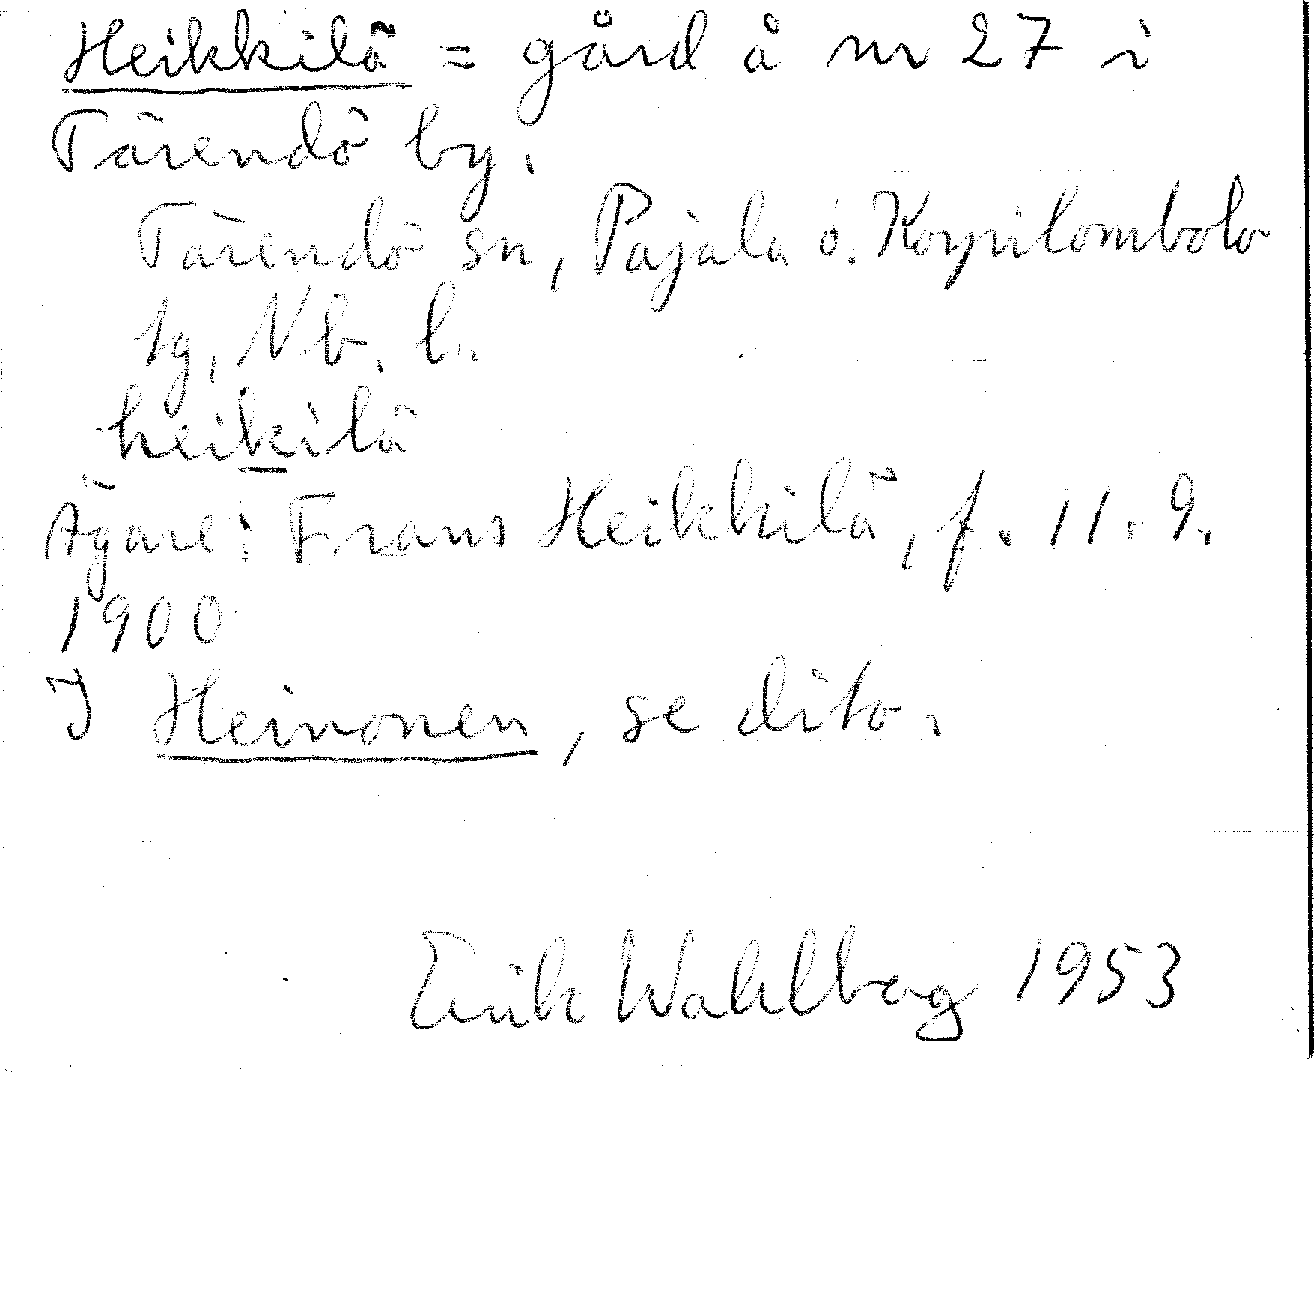 Heikkilä = gård å nr 27 i
Tärendö by.
Tärendö sn, Pajala o. Korpilombolo
tg, Nb. l.
heikilä
Ägare: Frans Heikkilä, f. 11.9.
1900
J Heinonen, se dito.
Erik Wahlberg 1953